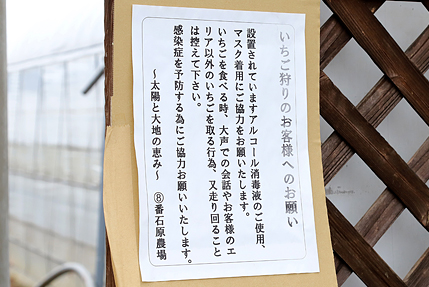 いちご狩りのお客様へのお願い
設置されていますアルコール消毒液のご使用、
マスク着用にご協力をお願いいたします。
いちごを食べる時、大声での会話やお客様のエ
リア以外のいちごを取る行為、又走り回ること
は控えて下さい。
感染症を予防する為にご協力お願いいたします。
～太陽と大地の恵み～ ⑧番石原農場